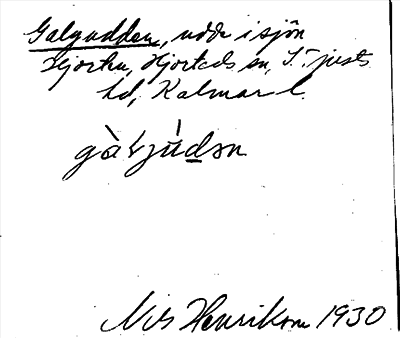 Galgudden, udde i sjön
Hjorten, Hjorteds sn, S. Tjusts
hd, Kalmar l.
gàljúdən
Nils Henrikson 1930